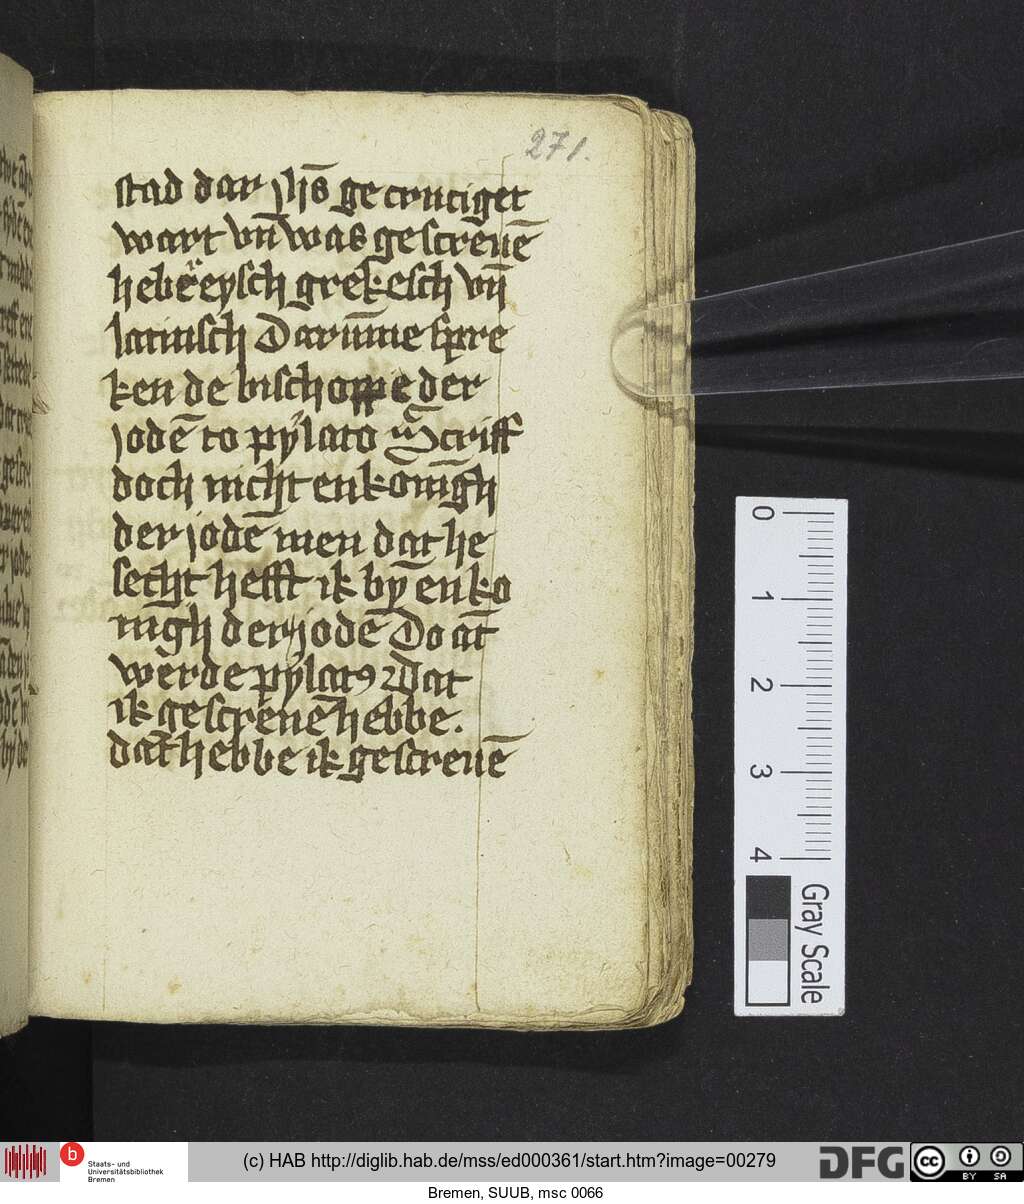 271.
stad dar jhs̄ ge cruciget
wart vn̄ was gescreuē
hebreeysch grekesch vn̄
latinsch Darūme spre
ken de bischoppe der
jodē to pylato Scriff
doch nicht en konīgh
der jodē men dat he
secht hefft ik by̅ en ko
nīgh der jodē Do āt
werde pylatꝰ Dat
ik gescreuē hebbe.
dat hebbe ik gescreuē
0
1
2
3
4
Gray Scale
b Staats- und
Universitätsbibliothek
Bremen
(c) HAB http://diglib.hab.de/mss/ed000361/start.htm?image=00279
DFG
cc BY SA
Bremen, SUUB, msc 0066